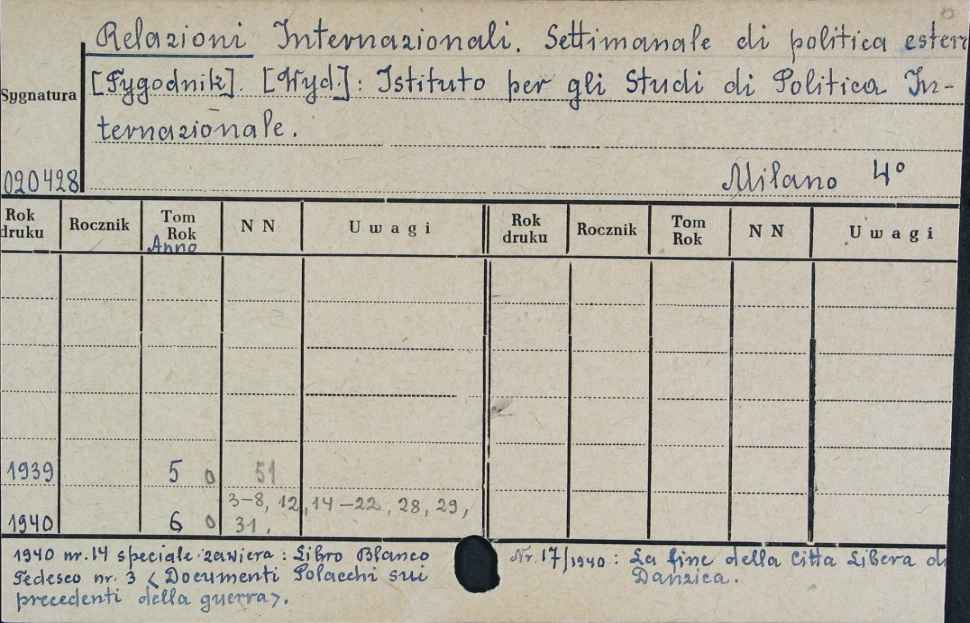 Relazioni Internazionali. Settimanale di politica ester
[Tygodnik]. [Wyd.]: Istituto per gli Studi di Politica In-
Sygnatura
ternazionale.
020428
Milano 4°
Rok druku Rocznik Tom Rok Anno N N Uwagi Rok druku Rocznik Tom Rok N N Uwagi
1939 5 0 51
3-8, 12, 14-22, 28, 29,
1940 6 0 31.
1940 nr. 14 speciale zawiera: Libro Blanco
Tedesco nr. 3 <Documenti Polacchi sui
precedenti della guerra>.
Nr. 17/1940: La fine della Citta Libera di
Danzica.